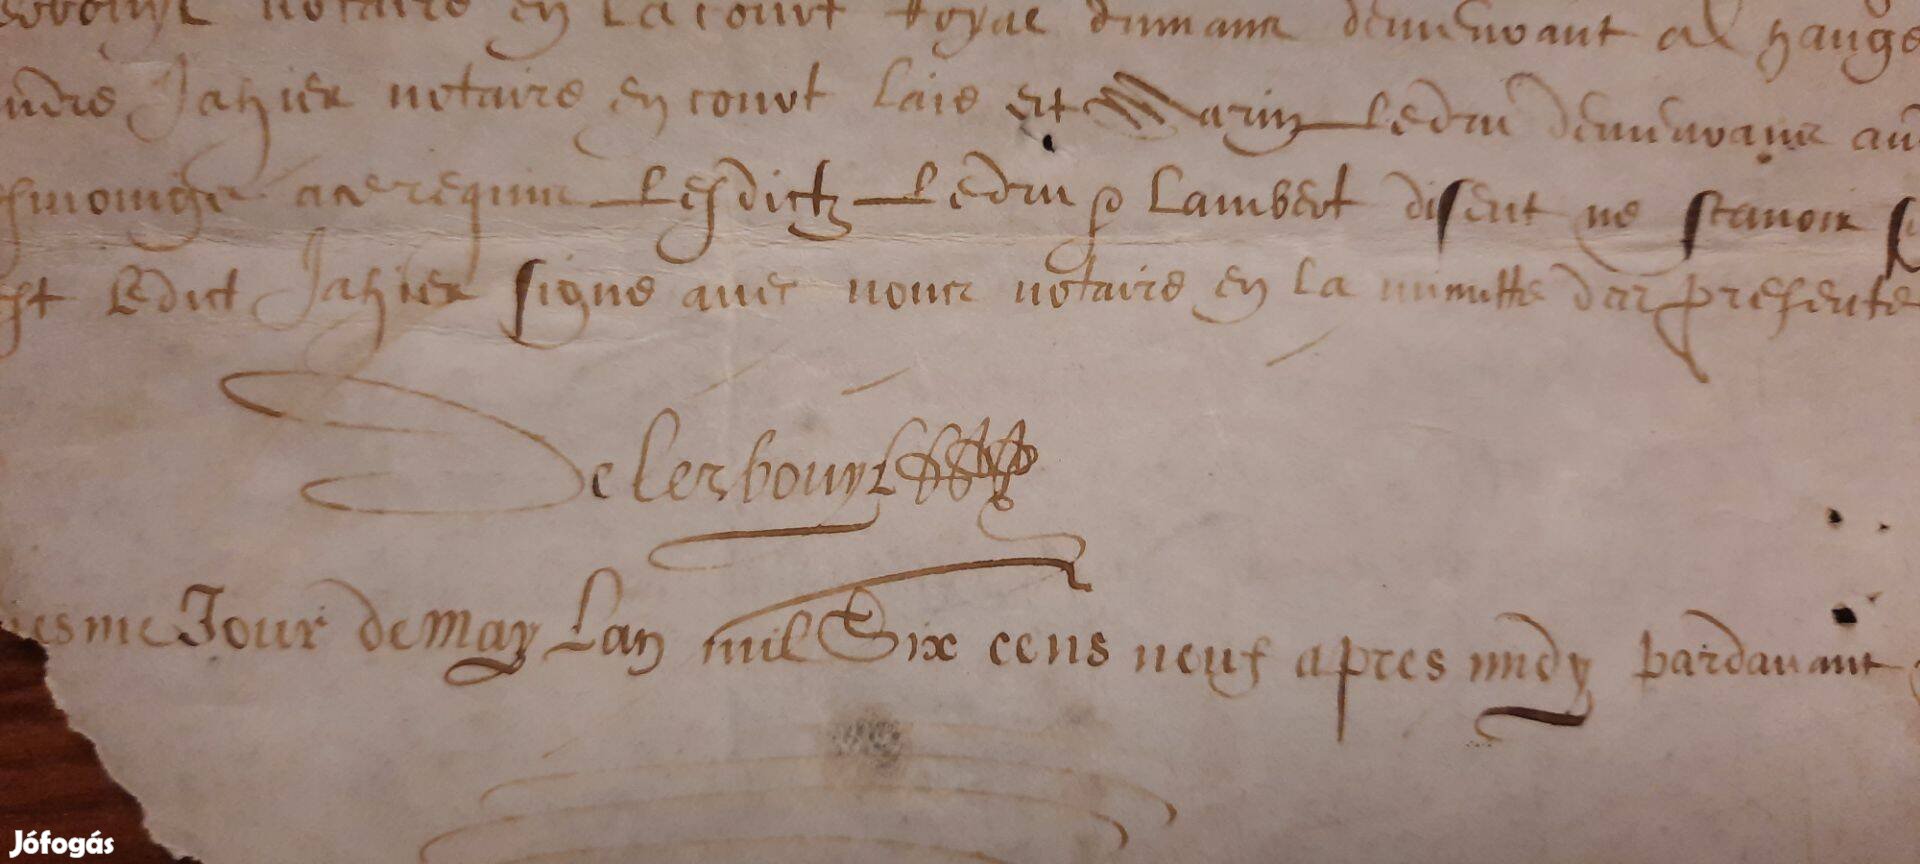 notaire en la court Royal du mans demeurant
Jahier notaire en court laie et Marin Ledru demeurans au
ad ce requis Lesdictz Ledru & Lambert disent ne scavoir
Ledict Jahier signé avec nous notaire en la minutte des presente
Delerbouyl
esme Jour de May Lan mil Six cens neuf apres midy pardavant
Jófogás